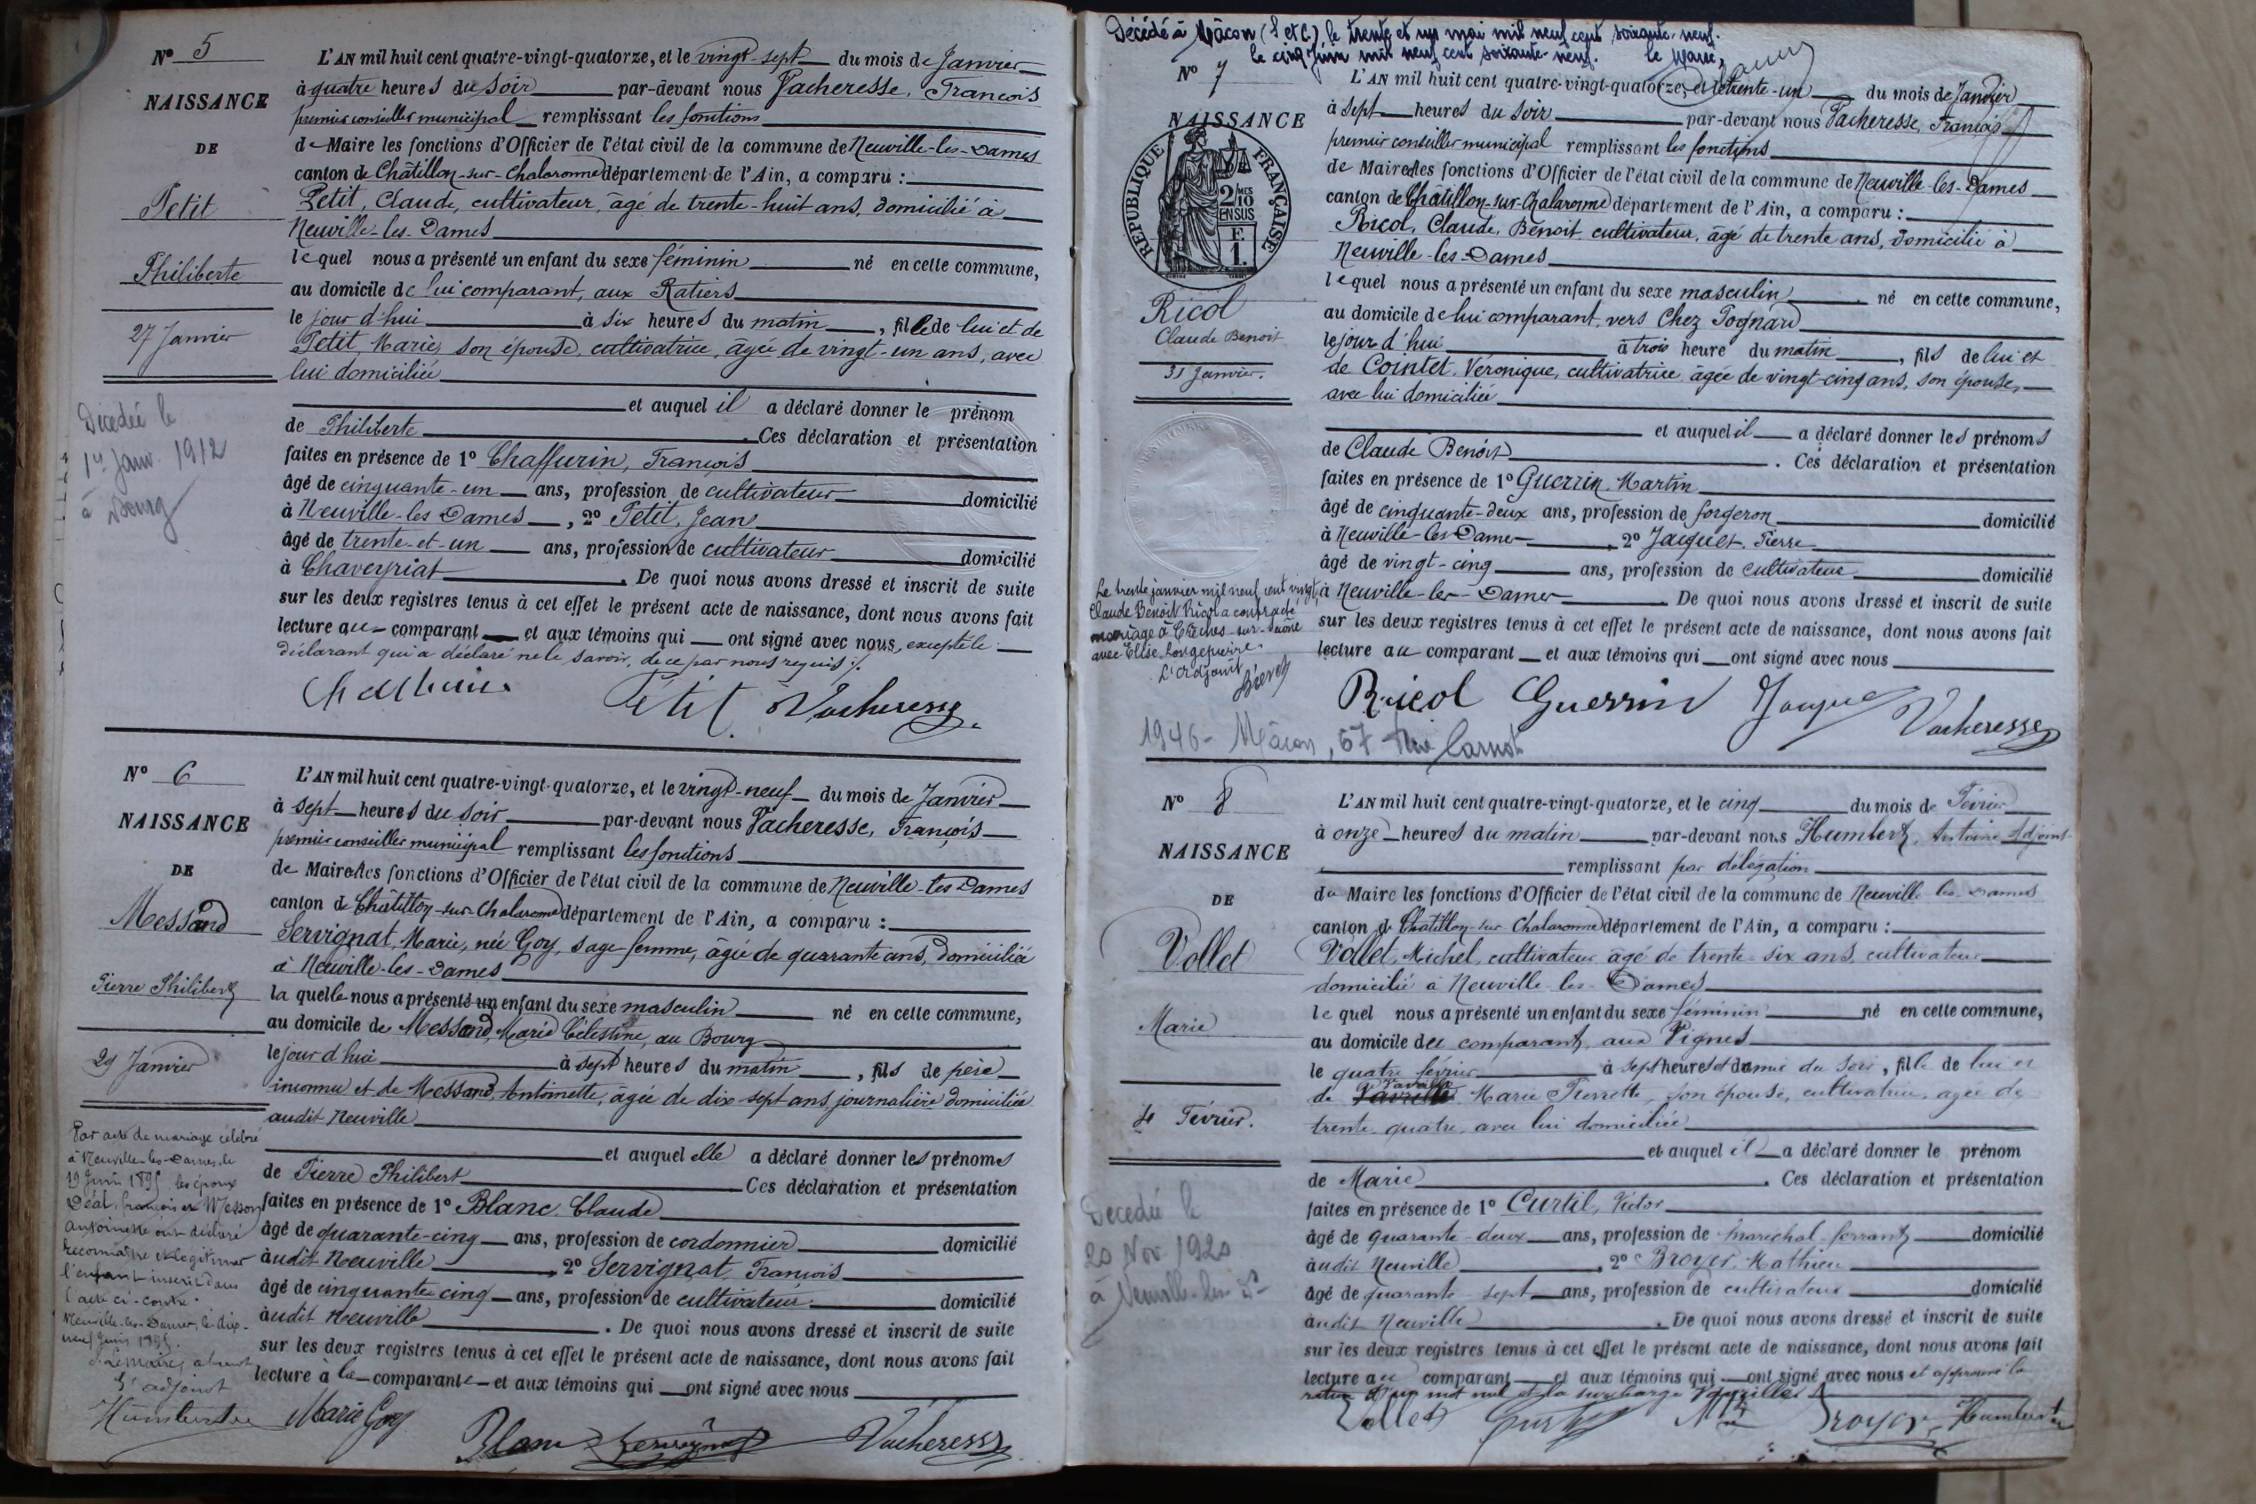 N° 5
NAISSANCE
DE
Petit
Philiberte
27 Janvier
Décédée le
1er Janv. 1912
à Bourg
L'AN mil huit cent quatre-vingt-quatorze, et le vingt-sept du mois de Janvier
à quatre heures du soir par-devant nous Vacheresse, François
premier conseiller municipal remplissant les fonctions
de Maire les fonctions d'Officier de l'état civil de la commune de Neuville-les-Dames
canton de Châtillon-sur-Chalaronne département de l'Ain, a comparu :
Petit, Claude, cultivateur, âgé de trente-huit ans, domicilié à
Neuville-les-Dames
lequel nous a présenté un enfant du sexe féminin né en cette commune,
au domicile de lui comparant, aux Ratiers
le jour d'hui à six heures du matin, fille de lui et de
Petit, Marie, son épouse, cultivatrice, âgée de vingt-un ans, avec
lui domiciliée
et auquel il a déclaré donner le prénom
de Philiberte Ces déclaration et présentation
faites en présence de 1° Chaffurin, François
âgé de cinquante-un ans, profession de cultivateur domicilié
à Neuville-les-Dames, 2° Petit, Jean
âgé de trente-et-un ans, profession de cultivateur domicilié
à Chaveyriat. De quoi nous avons dressé et inscrit de suite
sur les deux registres tenus à cet effet le présent acte de naissance, dont nous avons fait
lecture au comparant et aux témoins qui ont signé avec nous, excepté le
déclarant qui a déclaré ne le savoir, de ce par nous requis ./.
Petit Vacheresse
N° 6
NAISSANCE
DE
Messand
Pierre Philibert
29 Janvier
Par acte de mariage célébré
à Neuville-les-Dames, le
19 Juin 1895 les époux
Déal, François et Messon
Antoinette ont déclaré
reconnaître et légitimer
l'enfant inscrit dans
l'acte ci-contre.
Neuville-les-Dames, le dix-
neuf Juin 1895.
P. le maire, absent
L'adjoint
Humbert
L'AN mil huit cent quatre-vingt-quatorze, et le vingt-neuf du mois de Janvier
à sept heures du soir par-devant nous Vacheresse, François
premier conseiller municipal remplissant les fonctions
de Maire les fonctions d'Officier de l'état civil de la commune de Neuville-les-Dames
canton de Châtillon-sur-Chalaronne département de l'Ain, a comparu :
Servignat, Marie, née Goy, sage-femme, âgée de quarante ans, domiciliée
à Neuville-les-Dames
laquelle nous a présenté un enfant du sexe masculin né en cette commune,
au domicile de Messand, Marie Célestine, au Bourg
le jour d'hui à sept heures du matin, fils de père
inconnu et de Messand, Antoinette, âgée de dix-sept ans, journalière domiciliée
audit Neuville
et auquel elle a déclaré donner les prénoms
de Pierre Philibert Ces déclaration et présentation
faites en présence de 1° Blanc, Claude
âgé de quarante-cinq ans, profession de cordonnier domicilié
audit Neuville, 2° Servignat, François
âgé de cinquante-cinq ans, profession de cultivateur domicilié
audit Neuville. De quoi nous avons dressé et inscrit de suite
sur les deux registres tenus à cet effet le présent acte de naissance, dont nous avons fait
lecture à la comparante et aux témoins qui ont signé avec nous
Marie Goy Blanc Servignat Vacheresse
Décédé à Mâcon (S et L) le trente et un mai mil neuf cent soixante-neuf.
le cinq Juin mil neuf cent soixante-neuf. Le Maire,
N° 7
NAISSANCE
RÉPUBLIQUE FRANÇAISE
2 MES
10
EN SUS
F.
1.
Ricol
Claude Benoit
31 Janvier.
Le trente janvier mil neuf cent vingt,
Claude Benoît Ricol a contracté
mariage à Crèches-sur-Saône
avec Elise Longepierre.
L'Adjoint
1946 - Mâcon, 67 Rue Carnot
L'AN mil huit cent quatre-vingt-quatorze, et le trente-un du mois de Janvier
à sept heures du soir par-devant nous Vacheresse, François
premier conseiller municipal remplissant les fonctions
de Maire les fonctions d'Officier de l'état civil de la commune de Neuville-les-Dames
canton de Châtillon-sur-Chalaronne département de l'Ain, a comparu :
Ricol, Claude, Benoit, cultivateur, âgé de trente ans, domicilié à
Neuville-les-Dames
lequel nous a présenté un enfant du sexe masculin né en cette commune,
au domicile de lui comparant, vers Chez Pognard
le jour d'hui à trois heure du matin, fils de lui et
de Cointet, Véronique, cultivatrice, âgée de vingt-cinq ans, son épouse,
avec lui domiciliée
et auquel il a déclaré donner les prénoms
de Claude Benoit. Ces déclaration et présentation
faites en présence de 1° Guerrin, Martin
âgé de cinquante-deux ans, profession de forgeron domicilié
à Neuville-les-Dames, 2° Jacquet, Pierre
âgé de vingt-cinq ans, profession de cultivateur domicilié
à Neuville-les-Dames. De quoi nous avons dressé et inscrit de suite
sur les deux registres tenus à cet effet le présent acte de naissance, dont nous avons fait
lecture au comparant et aux témoins qui ont signé avec nous
Ricol Guerrin Vacheresse
N° 8
NAISSANCE
DE
Vollet
Marie
4 Février.
Décédée le
20 Nov. 1920
à Neuville-les-D
L'AN mil huit cent quatre-vingt-quatorze, et le cinq du mois de Février
à onze heures du matin par-devant nous Humbert, Antoine Adjoint
remplissant par délégation
du Maire les fonctions d'Officier de l'état civil de la commune de Neuville-les-Dames
canton de Châtillon-sur-Chalaronne département de l'Ain, a comparu :
Vollet, Michel, cultivateur, âgé de trente-six ans, cultivateur
domicilié à Neuville-les-Dames
lequel nous a présenté un enfant du sexe féminin né en cette commune,
au domicile du comparant, aux Vignes
le quatre février à sept heures et demie du soir, fille de lui et
de Marie Pierrette, son épouse, cultivatrice, âgée de
trente-quatre, avec lui domiciliée
et auquel il a déclaré donner le prénom
de Marie. Ces déclaration et présentation
faites en présence de 1° Curtil, Victor
âgé de quarante-deux ans, profession de maréchal-ferrant domicilié
audit Neuville, 2° Broyer, Mathieu
âgé de quarante-sept ans, profession de cultivateur domicilié
audit Neuville. De quoi nous avons dressé et inscrit de suite
sur les deux registres tenus à cet effet le présent acte de naissance, dont nous avons fait
lecture au comparant et aux témoins qui ont signé avec nous et approuvé la
rature d'un mot nul et la surcharge
Vollet Broyer Humbert